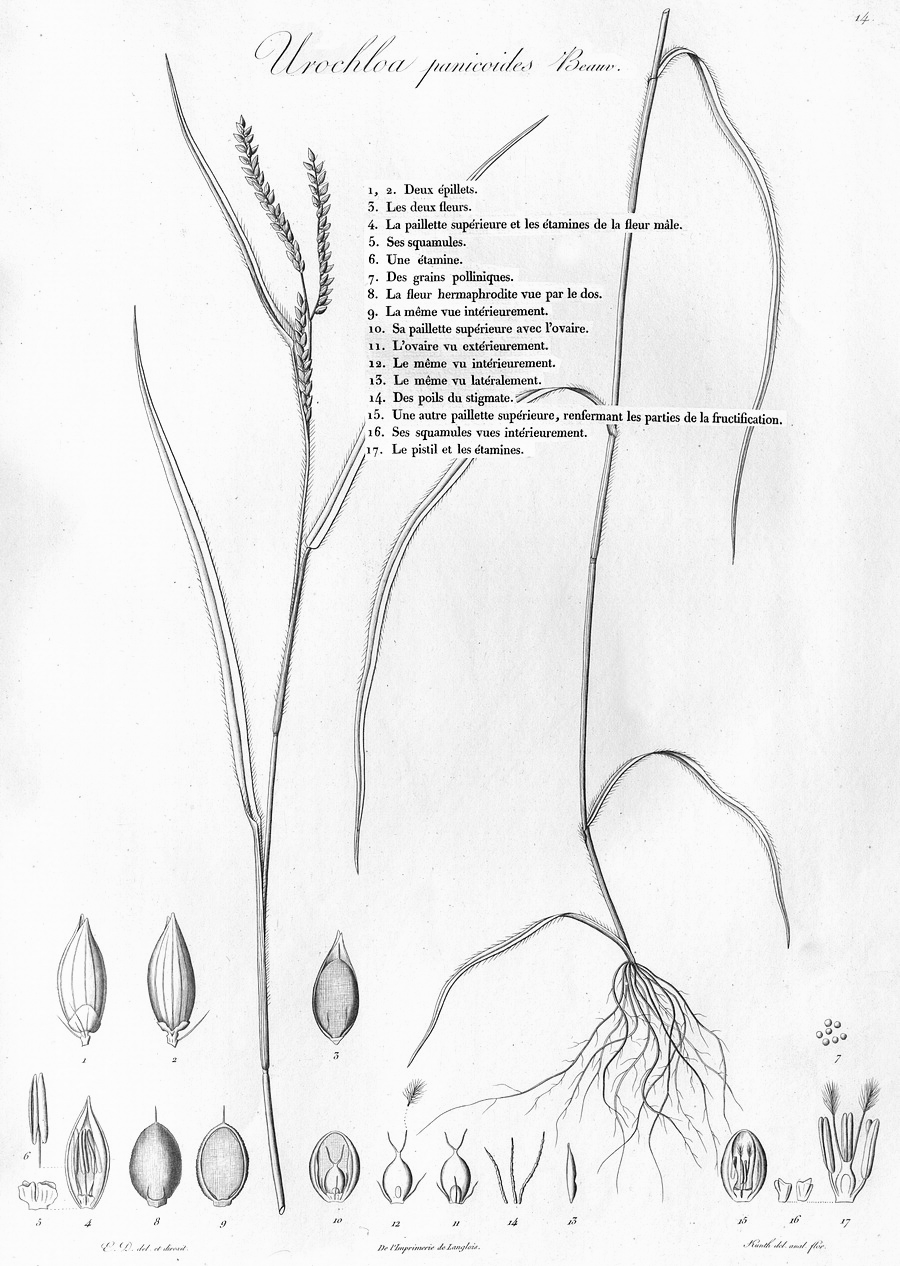 14.
Urochloa panicoides Beauv.
1, 2. Deux épillets.
3. Les deux fleurs.
4. La paillette supérieure et les étamines de la fleur mâle.
5. Ses squamules.
6. Une étamine.
7. Des grains polliniques.
8. La fleur hermaphrodite vue par le dos.
9. La même vue intérieurement.
10. Sa paillette supérieure avec l'ovaire.
11. L'ovaire vu extérieurement.
12. Le même vu intérieurement.
13. Le même vu latéralement.
14. Des poils du stigmate.
15. Une autre paillette supérieure, renfermant les parties de la fructification.
16. Ses squamules vues intérieurement.
17. Le pistil et les étamines.
1 2 3 7
6
5 4 8 9 10 12 11 14 13 15 16 17
E. D. del. et direxit. De l'Imprimerie de Langlois. Kunth del. anal. flor.